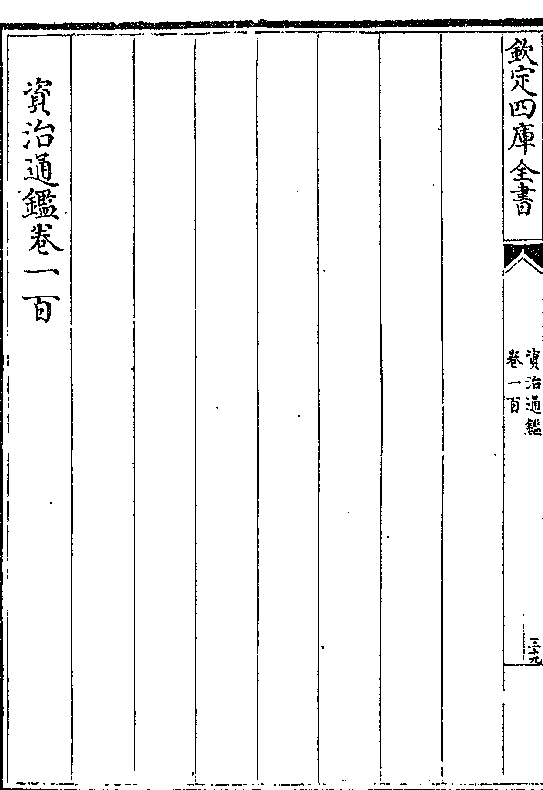 欽定四庫全書
資治通鑑
卷一百
三十九
資治通鑑卷一百